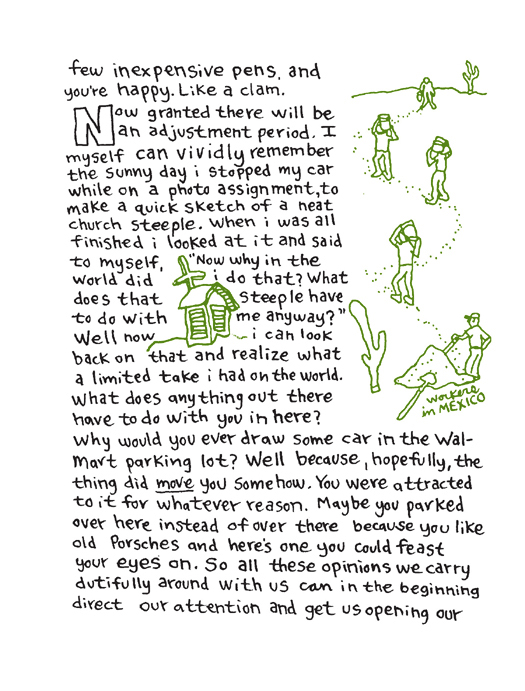 few inexpensive pens, and
you're happy. Like a clam.
Now granted there will be
an adjustment period. I
myself can vividly remember
the sunny day i stopped my car
while on a photo assignment, to
make a quick sketch of a neat
church steeple. When i was all
finished i looked at it and said
to myself, "Now why in the
world did i do that? What
does that steeple have
to do with me anyway?"
Well now i can look
back on that and realize what
a limited take i had on the world.
What does anything out there
have to do with you in here?
Why would you ever draw some car in the Wal-
mart parking lot? Well because, hopefully, the
thing did move you somehow. You were attracted
to it for whatever reason. Maybe you parked
over here instead of over there because you like
old Porsches and here's one you could feast
your eyes on. So all these opinions we carry
dutifully around with us can in the beginning
direct our attention and get us opening our
workers
in MEXICO